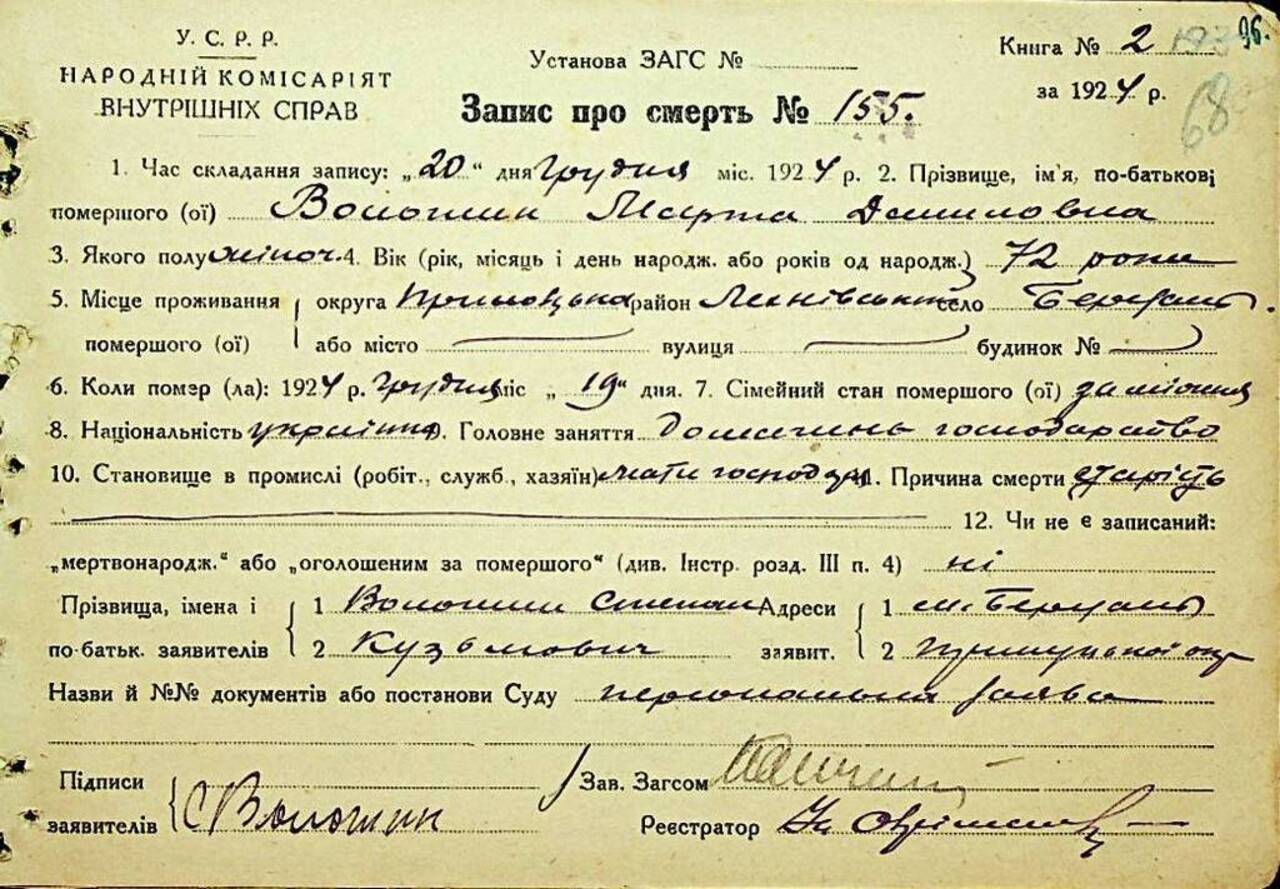 У. С. Р. Р.
НАРОДНІЙ КОМІСАРІЯТ
ВНУТРІШНІХ СПРАВ
Установа ЗАГС №
Книга № 2 96.
за 1924 р. 68
Запис про смерть № 155.
1. Час складання запису: „20“ дня грудня міс. 1924 р. 2. Прізвище, ім'я, по-батькові
помершого (ої) Волошин Марта Даниловна
3. Якого полу жіноч. 4. Вік (рік, місяць і день народж. або років од народж.) 72 роки
5. Місце проживання округа Прилуцька район село
помершого (ої) або місто вулиця будинок №
6. Коли помэр (ла): 1924 р. грудня міс „19“ дня. 7. Сімейний стан помершого (ої) заміжня
8. Національність українка 9. Головне заняття господарство
10. Становище в промислі (робіт., служб., хазяїн) мати господаря 11. Причина смерти старість
12. Чи не є записаний:
„мертвонародж.“ або „оголошеним за помершого“ (див. Інстр. розд. III п. 4) ні
Прізвища, імена і 1 Волошин Степан Адреси 1 м.
по-батьк. заявителів 2 Кузьмович заявит. 2 Прилуцької окр
Назви й №№ документів або постанови Суду персональна заява
Підписи Зав. Загсом
заявителів С Волошин Реєстратор